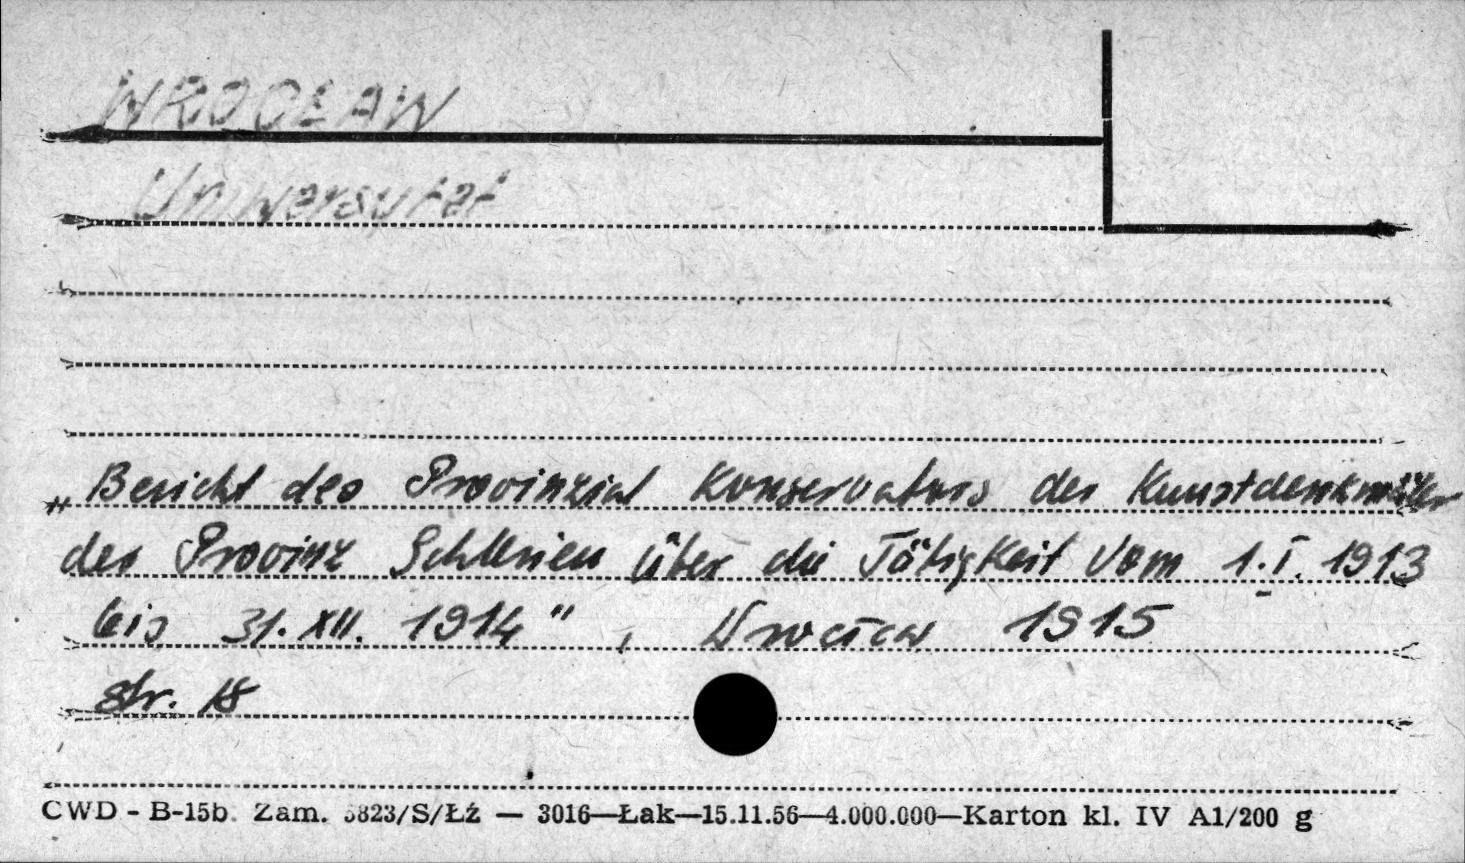 WROCŁAW
Uniwersytet
„Bericht des Provinzial Konservators der Kunstdenkmäler
der Provinz Schlesien über die Tätigkeit vom 1.I. 1913
bis 31.XII. 1914", Wrocław 1915
str. 18
CWD - B-15b. Zam. 5823/S/Łź — 3016—Łak—15.11.56—4.000.000—Karton kl. IV A1/200 g